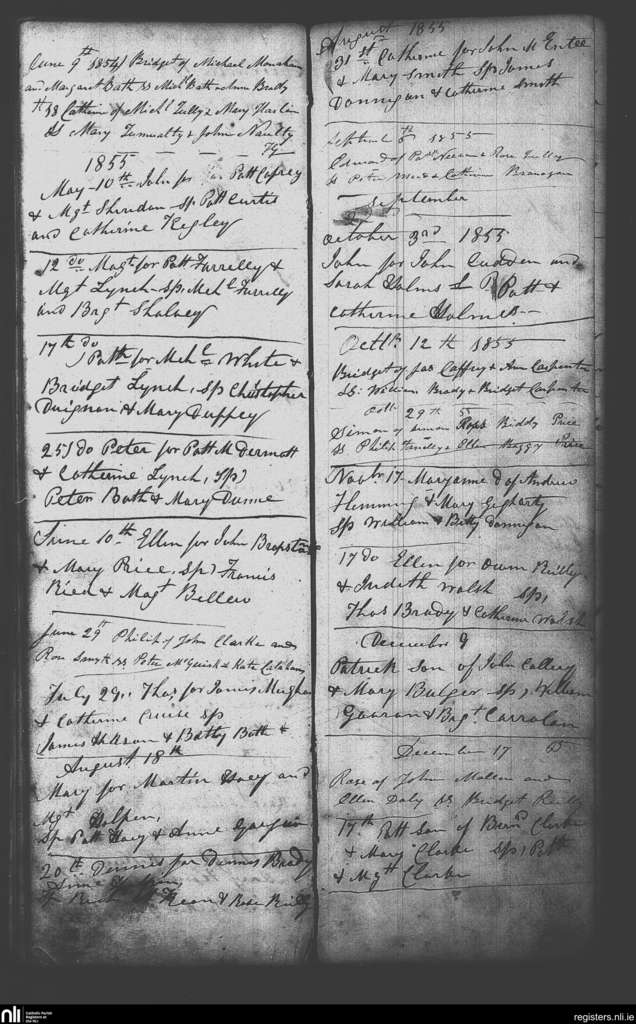 June 9th 1854 Bridget of Michael Monahan
and Margaret Bath ss Michl Bath & Anne Brady
ss Catherine of Michl Tully & Mary
ss Mary & John Naulty
1855
May 10th John for Patt Cafrey
& Mgt Sheridan Sp Patt Curtis
and Catherine Kegley
12 do Magt for Patt Farrelly &
Mgt Lynch Sp, Mchl Farrelly
and Brgt Shalvey
17th do Patk for Mchl White &
Bridget Lynch, Sp Christopher
Duignan & Mary Duffey
25 do Peter for Patt McDermott
& Catherine Lynch, Sp,
Peter Bath & Mary Dunne
June 10th Ellen for John
& Mary Rice, Sp, Francis
Rice & Magt Bellew
June 29th Philip of John Clarke and
Rose Smyth ss Peter McGuirk & Kate
July 29, Thos for James Meighan
& Catherine Cruise Sp
James & Batty Bath &
August 18th
Mary for Martin Hoey and
Mgt Halpen,
Sp Patt Hoey & Anne
20th Dennis for Dennis Brady
Anne
& Rose Reilly
August 1855
31st Catherine for John McEntee
& Mary Smith Sp James
Donnigan & Catherine Smith
September 6th 1855
Edward of Patt & Rose Tully
ss Peter & Catherine Branagan
September
October 3rd 1855
John for John Cudden and
Sarah Holmes S P Patt &
Catherine Holmes
Octbr 12th 1855
Bridget of Jas Caffrey & Ann Carpenter
SS. William Brady & Bridget Carpenter
Oct 29th 55
Simon of Simon Ross Biddy Price
ss Philip & Ellen Price
Novbr 17 Maryanne d of Andrew
Flemming & Mary Gegharty
Sp William & Betty Donnigan
17 do Ellen for Owen Reilley
& Judith Walsh Sp,
Thos Brady & Catherine Walsh
December 9
Patrick son of John Colley
& Mary Bulger Sp, William
& Brgt Carrolan
December 17 55
Rose of John Mallon and
Ellen Daly ss Bridget Reilly
17th Patt son of Clarke
& Mary Clarke Sp, Patt
& Mgt Clarke
nli
Catholic Parish
Registers at
the NLI
registers.nli.ie